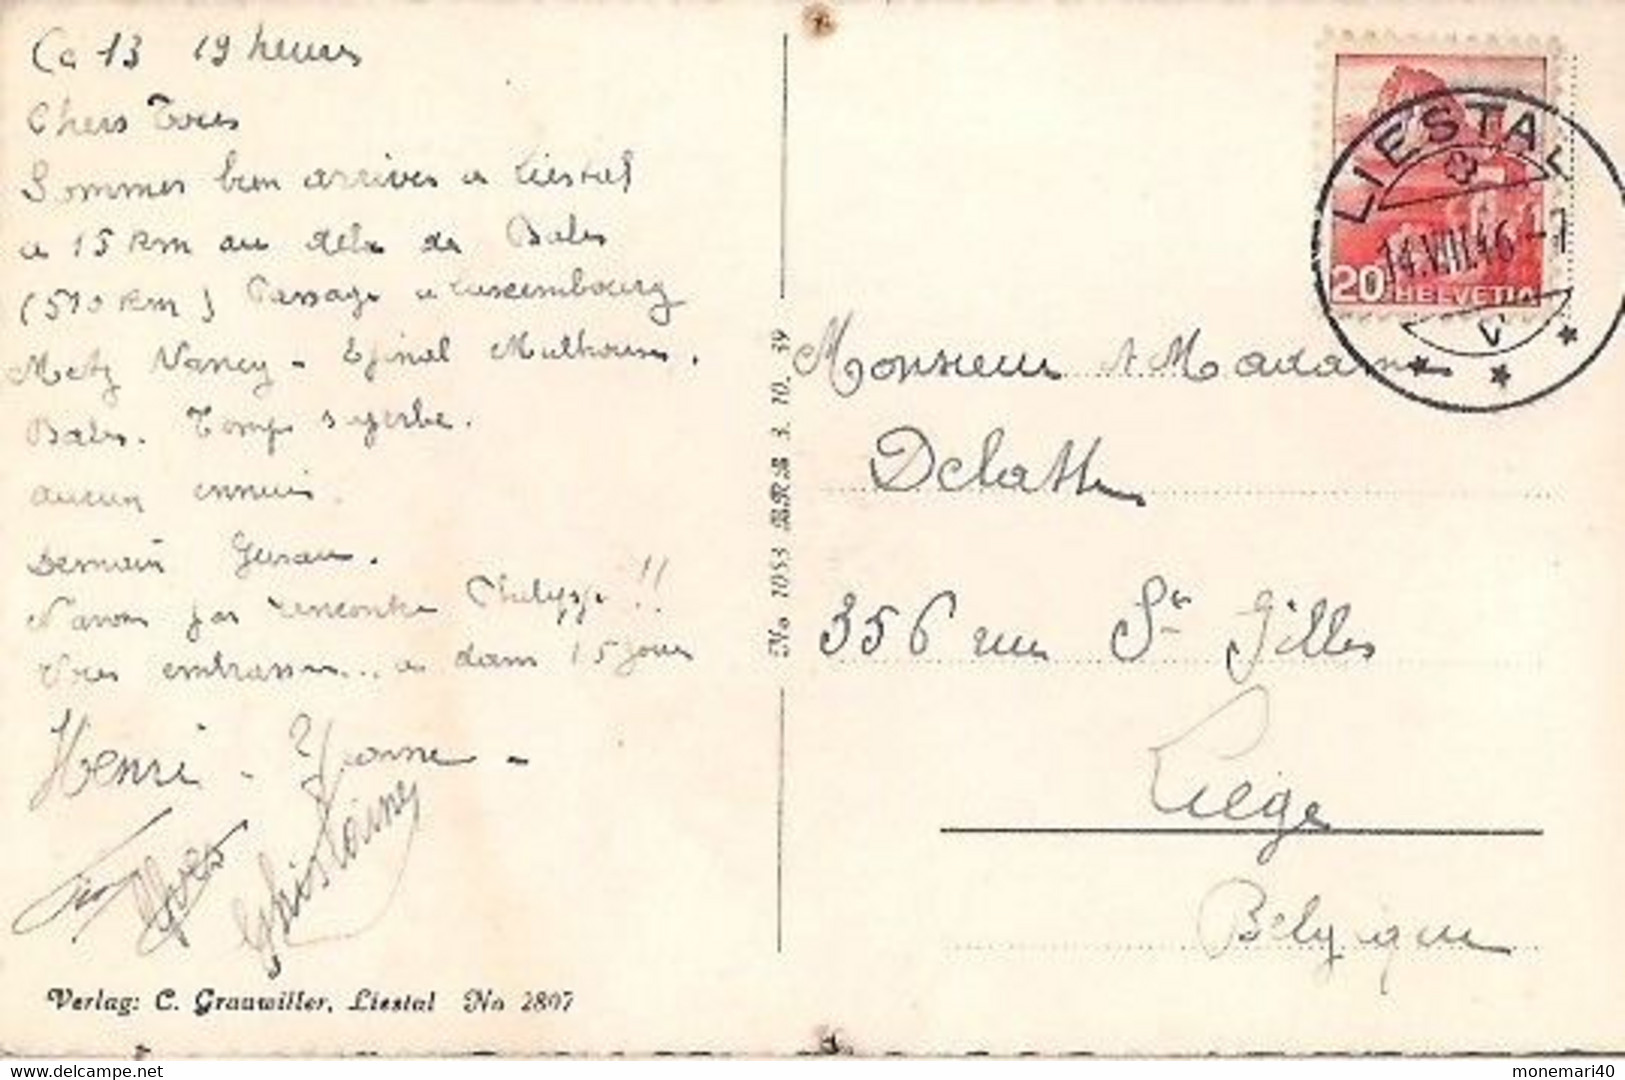 Ce 13 19 heures
Chers Tous
Sommes bien arrivés a Liestal
a 15 km au dela de Bales
(510 km) Passage a Luxembourg
Metz Nancy - Epinal Mulhouse.
Bales. Temps superbe.
aucun ennuis.
Demain
N'avons pas rencontré Philippe !!
Vous embrassons... a dans 15 jours
Henri - Yvonne -
Yves Ghislaine
Verlag: C. Grauwiller, Liestal No 2807
No 1053 BRB 3. 10. 39
LIESTAL
14.VIII.46 - 7
20 HELVETIA
Monsieur & Madame
Delatte
356 rue St Gilles
Liège
Belgique
www.delcampe.net
monemari40